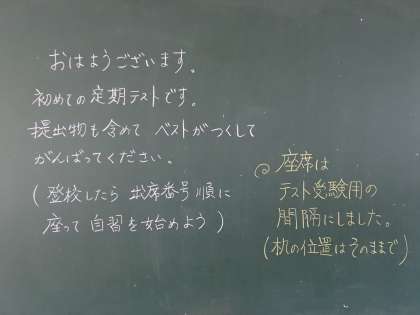 おはようございます。
初めての定期テストです。
提出物も含めて ベストがつくして
がんばってください。
(登校したら 出席番号順に
座って 自習を始めよう)
◎座席は
テスト受験用の
間隔にしました。
(机の位置はそのままで)